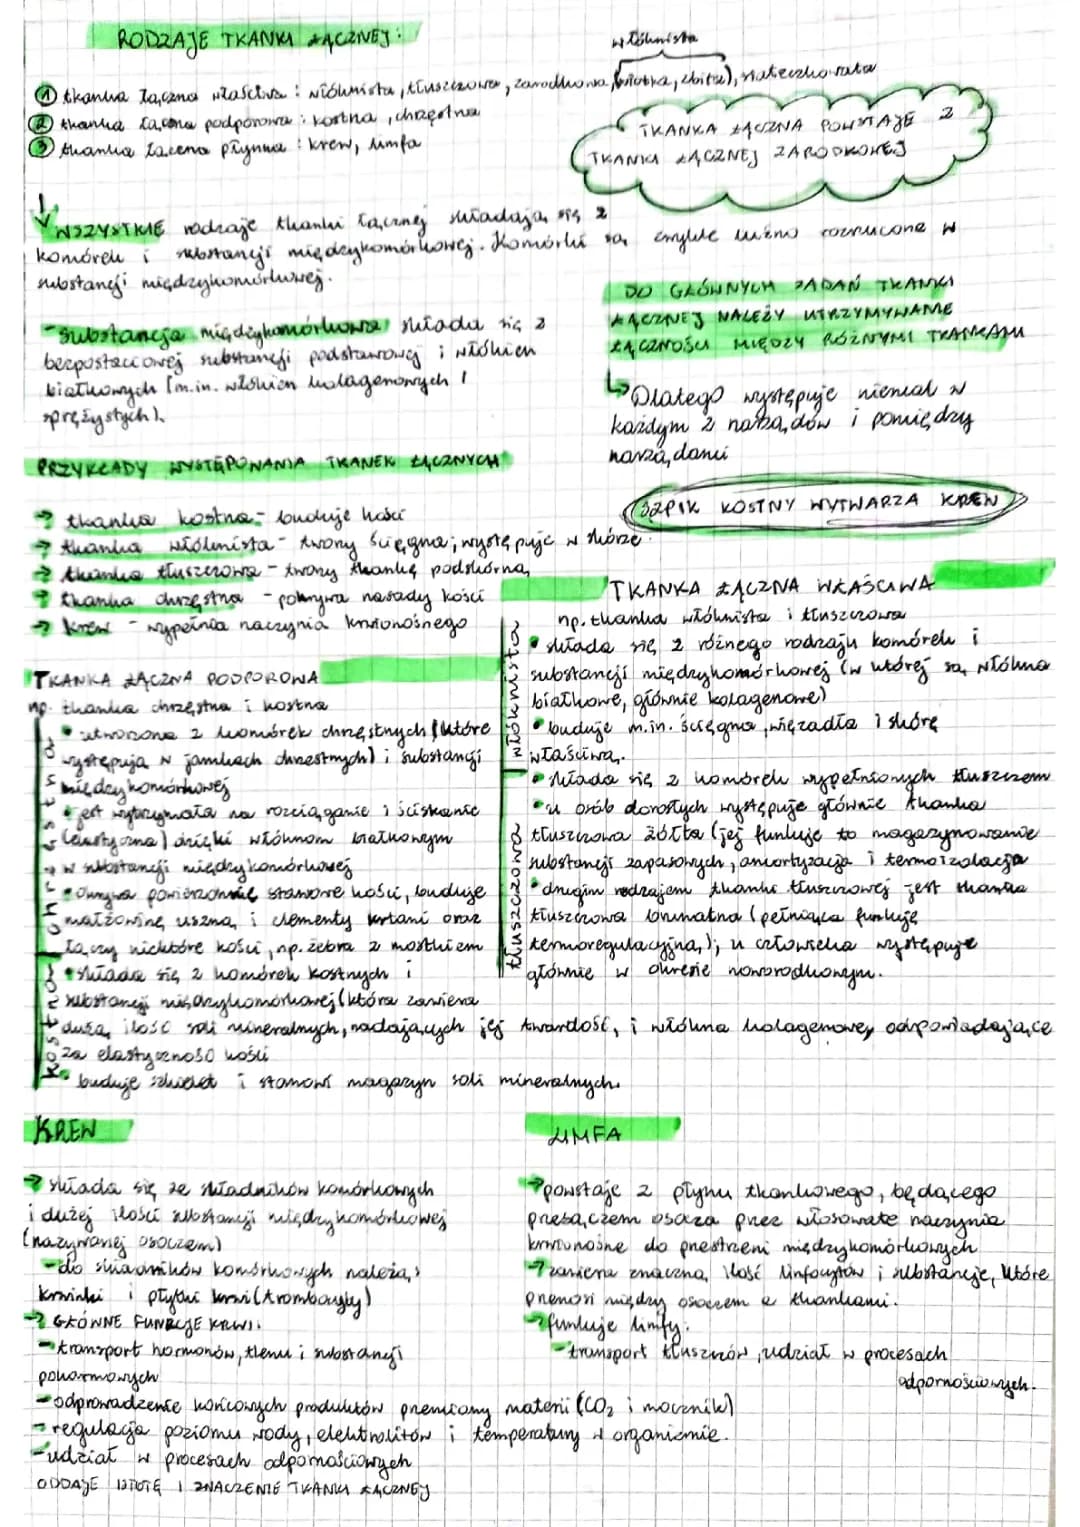 RODZAJE TKANKI ŁĄCZNEJ:
włóknista
① tkanka łączna właściwa: włóknista, tłuszczowa, zarodkowa, (wiotka, zbita), siateczkowata
② tkanka łączna podporowa: kostna, chrzęstna
③ tkanka łączna płynna: krew, limfa
TKANKA ŁĄCZNA POWSTAJE Z
TKANKI ŁĄCZNEJ ZARODKOWEJ
WSZYSTKIE rodzaje tkanki łącznej składają się z
komórek i substancji międzykomórkowej. Komórki są zwykle luźno rozrzucone w
substancji międzykomórkowej.
- substancja międzykomórkowa składa się z
bezpostaciowej substancji podstawowej i włókien
białkowych (m.in. włókien kolagenowych i
sprężystych).
DO GŁÓWNYCH ZADAŃ TKANKI
ŁĄCZNEJ NALEŻY UTRZYMYWANIE
ŁĄCZNOŚCI MIĘDZY RÓŻNYMI TKANKAMI
↳ Dlatego występuje niemal w
każdym z narządów i pomiędzy
narządami
SZPIK KOSTNY WYTWARZA KREW
PRZYKŁADY WYSTĘPOWANIA TKANEK ŁĄCZNYCH
→ tkanka kostna - buduje kości
→ tkanka włóknista - tworzy ścięgna; występuje w skórze
→ tkanka tłuszczowa - tworzy tkankę podskórną
→ tkanka chrzęstna - pokrywa nasady kości
→ krew - wypełnia naczynia krwionośnego
TKANKA ŁĄCZNA PODPOROWA
np. tkanka chrzęstna i kostna
chrzęstna
• utworzona z komórek chrzęstnych (które
występują w jamkach chrzęstnych) i substancji
międzykomórkowej
• jest wytrzymała na rozciąganie i ściskanie
(elastyczna) dzięki włóknom białkowym
w substancji międzykomórkowej
• okrywa powierzchnie stawowe kości, buduje
małżowinę uszną, i elementy krtani oraz
łączy niektóre kości, np. żebra z mostkiem
kostna
• składa się z komórek kostnych i
substancji międzykomórkowej (która zawiera
dużą ilość soli mineralnych, nadających jej twardość, i włókna kolagenowe, odpowiadające
za elastyczność kości
• buduje szkielet i stanowi magazyn soli mineralnych.
TKANKA ŁĄCZNA WŁAŚCIWA
np. tkanka włóknista i tłuszczowa
włóknista
• składa się z różnego rodzaju komórek i
substancji międzykomórkowej (w której są włókna
białkowe, głównie kolagenowe)
• buduje m.in. ścięgna, więzadła i skórę
właściwą.
tłuszczowa
• składa się z komórek wypełnionych tłuszczem
• u osób dorosłych występuje głównie tkanka
tłuszczowa żółta (jej funkcje to magazynowanie
substancji zapasowych, amortyzacja i termoizolacja
• drugim rodzajem tkanki tłuszczowej jest tkanka
tłuszczowa brunatna (pełniąca funkcję
termoregulacyjną,); u człowieka występuje
głównie w okresie noworodkowym.
KREW
→ składa się ze składników komórkowych
i dużej ilości substancji międzykomórkowej
(nazywanej osoczem)
- do składników komórkowych należą,
krwinki i płytki krwi (trombocyty)
→ GŁÓWNE FUNKCJE KRWI:
- transport hormonów, tlenu i substancji
pokarmowych
- odprowadzenie końcowych produktów przemiany materii (CO₂ i mocznik)
- regulacja poziomu wody, elektrolitów i temperatury w organizmie.
- udział w procesach odpornościowych
ODDAJE ISTOTĘ I ZNACZENIE TKANKI ŁĄCZNEJ
LIMFA
→ powstaje z płynu tkankowego, będącego
przesączem osocza przez włosowate naczynia
krwionośne do przestrzeni międzykomórkowych
→ zawiera znaczną ilość limfocytów i substancje, które
przenosi między osoczem a tkankami.
→ funkcje limfy:
- transport tłuszczów, udział w procesach
odpornościowych.